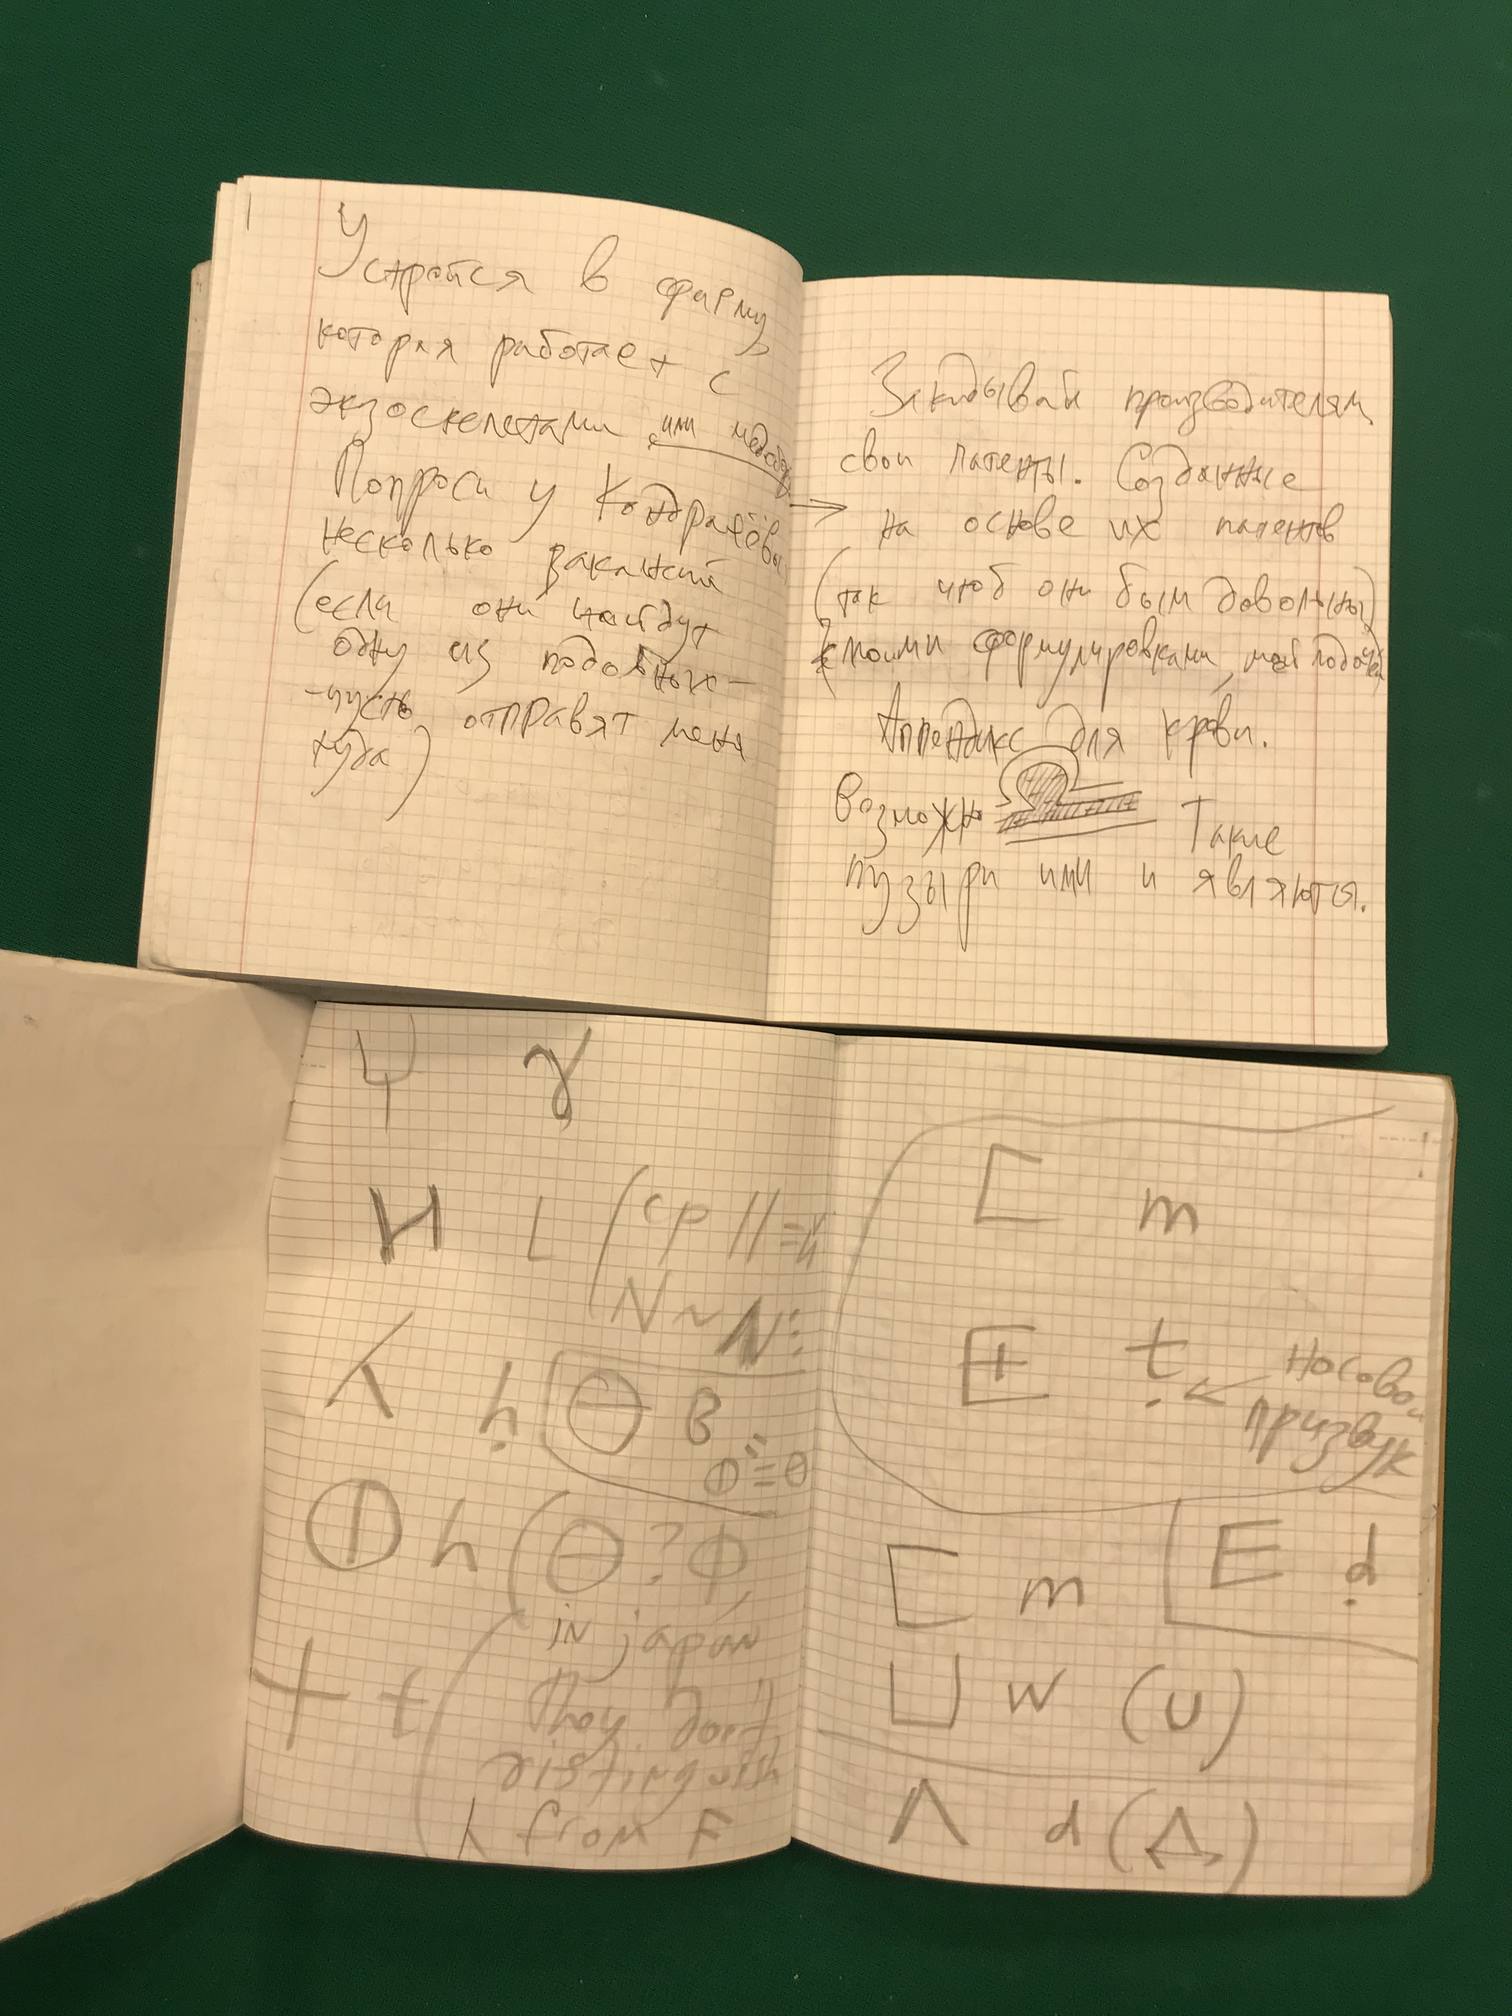 Устройся в фирму,
которая работает с
экзоскелетами или
Попроси у Кондратёвы
несколько вакансий
(если они найдут
одну из подобных –
– пусть отправят меня
туда)
Закидывай производителям
свои патенты. Созданные
на основе их патентов
(так чтоб они были довольны)
моими формулировками, моей подачей
Аппендикс для крови.
Возможно Такие
пузыри ими и являются.
Ψ γ
И L (ср //=и
N ~ N:
h
Θ B
Ф"=Θ
Ф h (Θ? Ф
in japan
they don't
distinguish
h from F
+ t
[ m
t ← носовой
призвук
[ m
E d
⊔ w (u)
Λ d (Д)